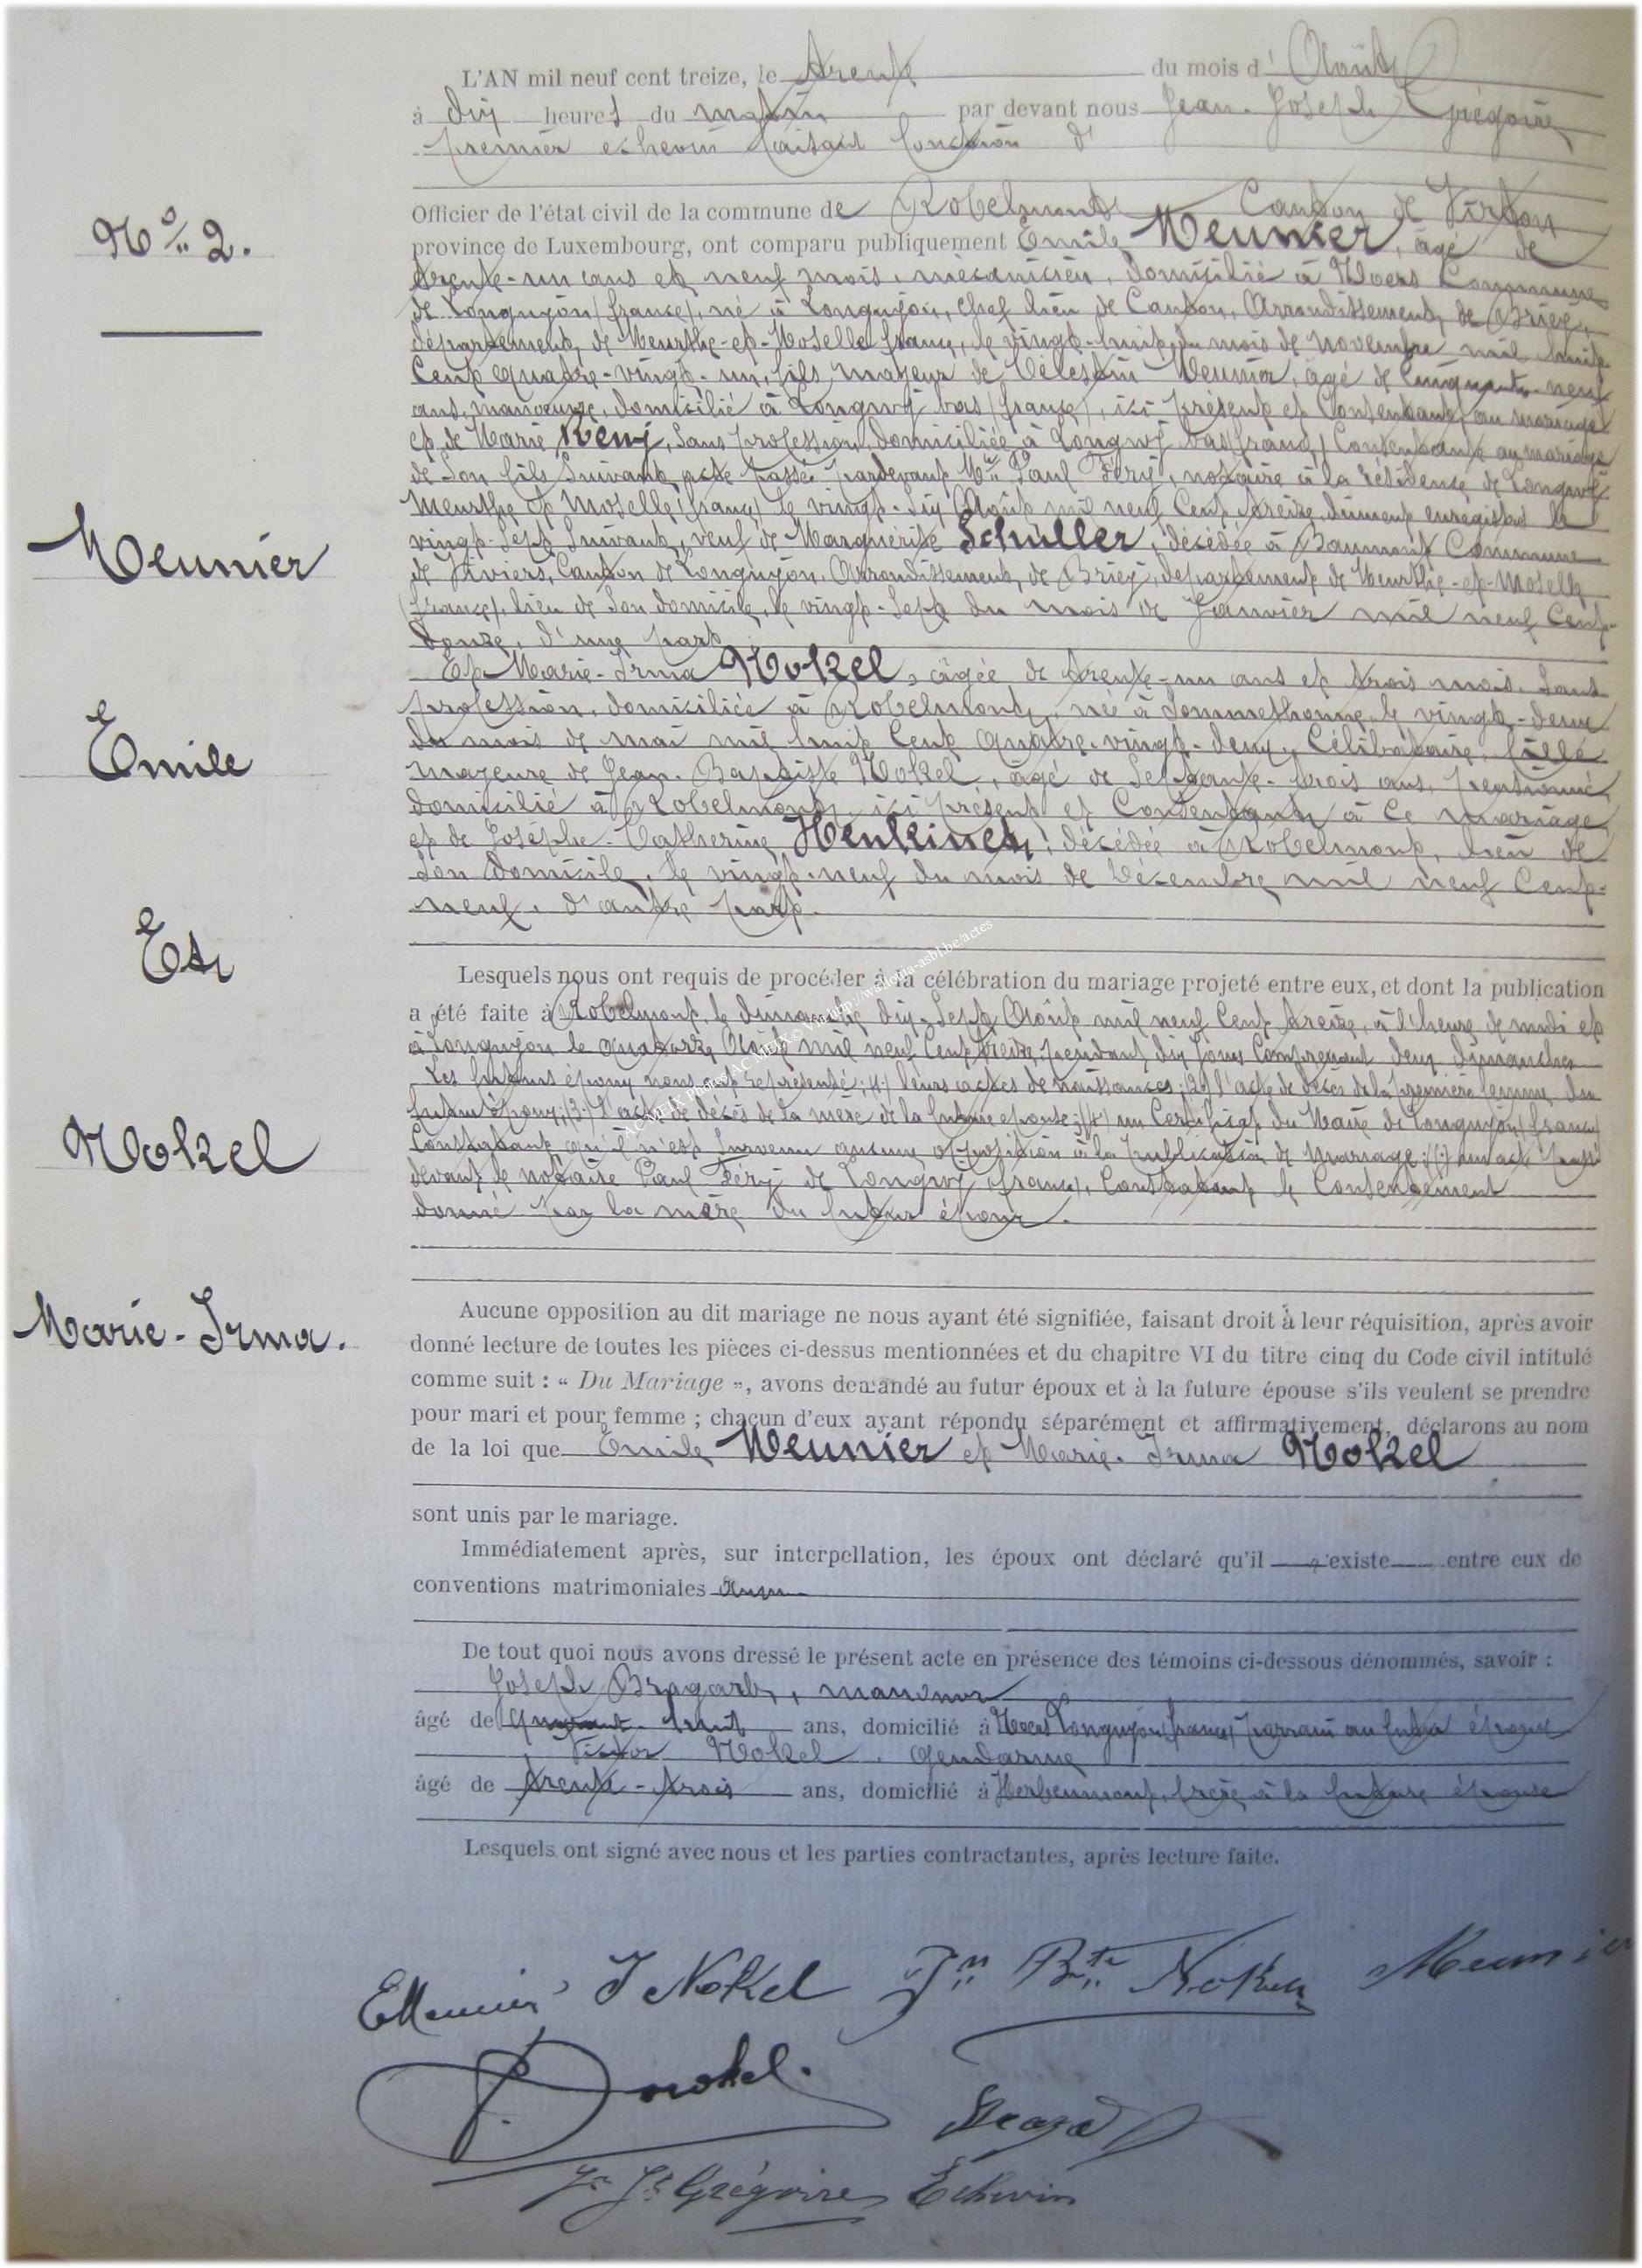 L'AN mil neuf cent treize, le trente du mois d' Août
à dix heures du matin par devant nous Jean-Joseph Grégoire
premier échevin faisant fonction d'
Officier de l'état civil de la commune de Robelmont Canton de Virton
N° 2.
province de Luxembourg, ont comparu publiquement Emile Meunier, âgé de
trente-un ans et neuf mois, mécanicien, domicilié à Noers Commune
de Longuyon (france), né à Longuyon, chef lieu de Canton, Arrondissement de Briey,
département de Meurthe-et-Moselle france, le vingt-huit du mois de novembre mil huit
Cent quatre-vingt-un, fils majeur de Célestin Meunier, âgé de Cinquante-neuf
ans, manœuvre, domicilié à Longwy bas (france), ici présent et Consentant au mariage
et de Marie Remy, Sans profession, domiciliée à Longwy bas (france) Consentante au mariage
de Son fils Suivant acte passé pardevant Me Paul Féry, notaire à la résidence de Longwy
Meurthe et Moselle (france) le vingt-six Août mil neuf Cent treize, dûment enregistré le
vingt-Sept Suivant, veuf de Marguerite Schuller, décédée à Baumont Commune
Meunier
de Viviers, Canton de Longuyon, Arrondissement de Briey, département de Meurthe-et-Moselle
(france), lieu de Son domicile, le vingt-Sept du mois de Janvier mil neuf Cent-
douze, d'une part
Et Marie-Irma Nokel, âgée de trente-un ans et trois mois, Sans
profession, domiciliée à Robelmont, née à Sommethonne, le vingt-deux
du mois de mai mil huit Cent quatre-vingt-deux, Célibataire, fille
Emile
majeure de Jean-Baptiste Nokel, âgé de Septante-trois ans, pensionné,
domicilié à Robelmont, ici présent et Consentant à Ce mariage,
et de Joséphe-Catherine Henkinet, décédée à Robelmont, lieu de
Son domicile, le vingt-neuf du mois de Décembre mil neuf Cent-
neuf, d'autre part.
Et
Lesquels nous ont requis de procéder à la célébration du mariage projeté entre eux, et dont la publication
a été faite à Robelmont, le dimanche dix-Sept Août mil neuf Cent treize, à l'heure de midi et
à Longuyon le quatorze Août mil neuf Cent treize, pendant dix jours Comprenant deux dimanches
Les futurs époux nous ont représenté: (1°) leurs actes de naissances; (2°) l'acte de décès de la première femme du
futur époux; (3°) l'acte de décès de la mère de la future épouse; (4°) un Certificat du Maire de Longuyon (france)
Constatant qu'il n'est Survenu aucune opposition à la publication de mariage; (5°) un acte passé
Nokel
devant le notaire Paul Féry de Longwy (france), Constatant le Consentement
donné par la mère du futur époux.
Aucune opposition au dit mariage ne nous ayant été signifiée, faisant droit à leur réquisition, après avoir
Marie-Irma.
donné lecture de toutes les pièces ci-dessus mentionnées et du chapitre VI du titre cinq du Code civil intitulé
comme suit : « Du Mariage », avons demandé au futur époux et à la future épouse s'ils veulent se prendre
pour mari et pour femme ; chacun d'eux ayant répondu séparément et affirmativement, déclarons au nom
de la loi que Emile Meunier et Marie-Irma Nokel
sont unis par le mariage.
Immédiatement après, sur interpellation, les époux ont déclaré qu'il n'existe entre eux de
conventions matrimoniales
De tout quoi nous avons dressé le présent acte en présence des témoins ci-dessous dénommés, savoir :
Joseph Bragard, manœuvre
âgé de huit ans, domicilié à Noers Longuyon (france) parrain au futur époux
Victor Nokel, Gendarme
âgé de trente-trois ans, domicilié à Herbeumont, frère à la future épouse
Lesquels ont signé avec nous et les parties contractantes, après lecture faite.
EMeunier I Nokel Jn Bte Nokel Meunier
V. Nokel.
Jn Jh Grégoire Echevin